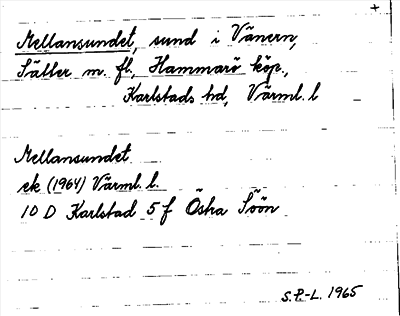 +
Mellansundet, sund i Vänern,
Sätter m. fl., Hammarö köp.,
Karlstads hd, Värml. l
Mellansundet
ek (1964) Värml. l.
10 D Karlstad 5 f Östra Söön
S.P.-L. 1965